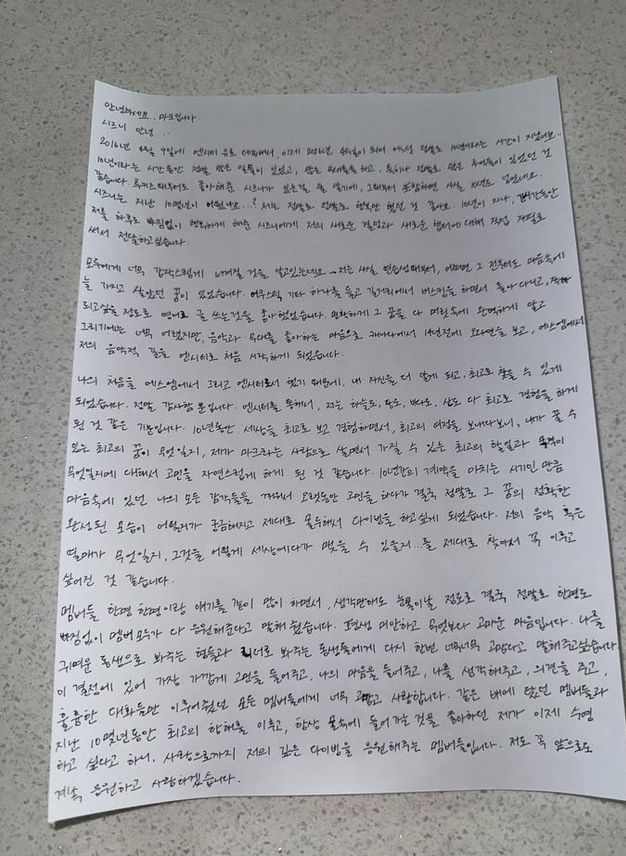 안녕하세요. 마크입니다.
시즈니 안녕...
2016년 4월 9일에 엔시티 유로 데뷔해서, 이제 2026년 4월이 되어 어느덧 정말로 10년이라는 시간이 지났어요..
10년이라는 시간동안 정말 많은 일들이 있었고, 많은 무대들을 하고, 특히나 정말로 많은 추억들이 있었던 것
같습니다. 루키즈때부터도 좋아해준 시즈니가 있는걸 잘 알기에, 그때부터 포함하면 사실 10년도 넘었네요.
시즈니는 지난 10몇년이 어땠나요...? 저는 정말로 정말로 행복만 했던 것 같아요. 10년이 지나, 그 시간동안
저를 하루도 빠짐없이 행복하게 해준 시즈니에게 저의 새로운 결정과 새로운 챕터에 대해 직접 자필로
써서 전달하고싶습니다.
모두에게 너무 갑작스럽게 느껴질 것을 알고있는데요 저는 사실 연습생때부터, 어쩌면 그 전부터도 마음속에
늘 가지고 살았던 꿈이 있었습니다. 어쿠스틱 기타 하나를 들고 길거리에서 버스킹을 하면서 돌아다니고,
되고싶을 정도로 영어로 글 쓰는것을 좋아했었습니다. 막연하게 그 꿈을 다 머릿속에 완벽하게 알고
그리기에는 너무 어렸지만, 음악과 무대를 좋아하는 마음으로 캐나다에서 14년전에 오디션을 보고, 에스엠에서
저의 음악적 길을 엔시티로 처음 시작하게 되었습니다.
나의 처음을 에스엠에서 그리고 엔시티로서 했기 때문에, 내 자신을 더 알게 되고, 최고로 찾을 수 있게
되었습니다. 정말 감사할 뿐입니다. 엔시티를 통해서, 저는 하늘도, 땅도, 바다도, 산도 다 최고로 경험을 하게
된 것 같은 기분입니다. 10년동안 세상을 최고로 보고 경험하면서, 최고의 여정을 보내다보니, 내가 꿀 수
있는 최고의 꿈이 무엇일지, 제가 마크라는 사람으로 살면서 가질 수 있는 최고의 할일과 목적이
무엇일지에 대해서 고민을 자연스럽게 하게 된 것 같습니다. 10년간의 계약을 마치는 시기인 만큼
마음속에 있던 나의 모든 감각들을 깨워서 오랫동안 고민을 하다가 결국 정말로 그 꿈의 정확한
완성된 모습이 어떨지가 궁금해지고 제대로 몰두해서 다이빙을 하고싶게 되었습니다. 저의 음악 혹은
열매가 무엇일지, 그것을 어떻게 세상에다가 맺을 수 있을지...를 제대로 찾아서 꼭 이루고
싶어진 것 같습니다.
멤버들 한명 한명이랑 얘기를 같이 많이 하면서, 생각만해도 눈물이날 정도로 결국 정말로 한명도
빠짐없이 멤버 모두가 다 응원해준다고 말해 줬습니다. 평생 미안하고 무엇보다 고마운 마음입니다. 나를
귀여운 동생으로 봐주는 형들과 리더로 봐주는 동생들에게 다시 한번 너무너무 고맙다고 말해주고싶습니다.
이 결정에 있어 가장 가깝게 고민을 들어주고, 나의 마음을 들어주고, 나를 생각해주고, 의견을 주고,
훌륭한 대화들만 이루어줬던 모든 멤버들에게 너무 고맙고 사랑합니다. 같은 배에 탔던 멤버들과
지난 10몇년동안 최고의 항해를 이루고, 항상 물속에 들어가는 것을 좋아하던 제가 이제 수영
하고 싶다고 하니, 사랑으로까지 저의 깊은 다이빙을 응원해주는 멤버들입니다. 저도 꼭 앞으로도
계속 응원하고 사랑하겠습니다.